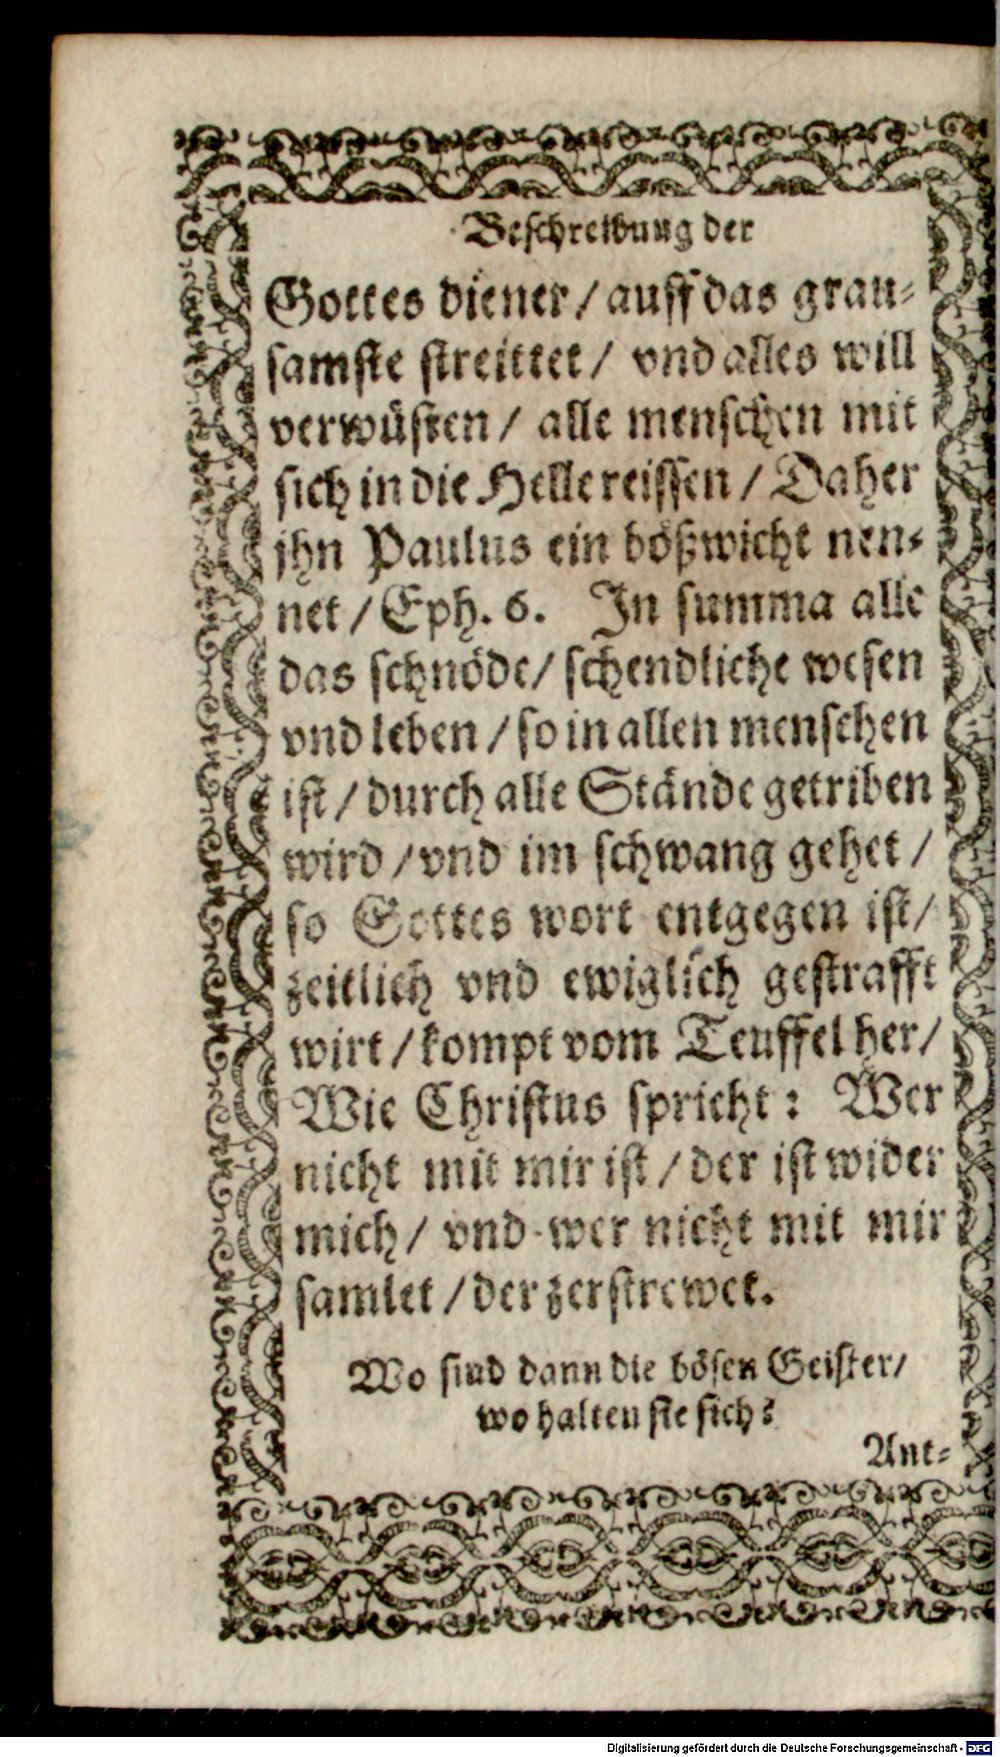 Beschreibung der
Gottes diener / auff das grau⸗
samste streittet / vnd alles will
verwüsten / alle menschen mit
sich in die Helle reissen / Daher
jhn Paulus ein bößwicht nen⸗
net / Eph. 6. In summa alle
das schnöde / schendliche wesen
vnd leben / so in allen menschen
ist / durch alle Stände getriben
wird / vnd im schwang gehet /
so Gottes wort entgegen ist /
zeitlich vnd ewiglich gestrafft
wirt / kompt vom Teuffel her /
Wie Christus spricht : Wer
nicht mit mir ist / der ist wider
mich / vnd wer nicht mit mir
samlet / der zerstrewet.
Wo sind dann die bösen Geister /
wo halten sie sich?
Ant⸗
Digitalisierung gefördert durch die Deutsche Forschungsgemeinschaft - DFG